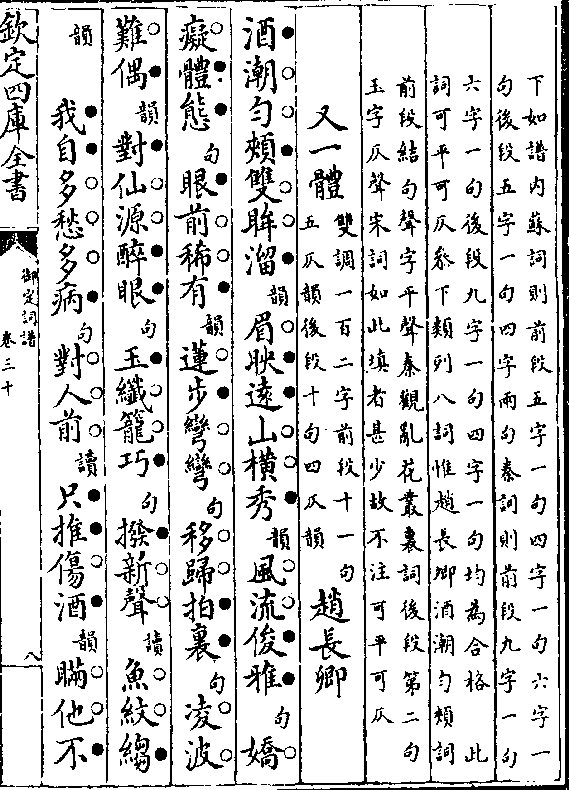 下如譜内蘇詞則前段五字一句四字一句六字一
句後段五字一句四字兩句秦詞則前段九字一句
六字一句後段九字一句四字一句均為合格此
詞可平可仄叅下類列八詞惟趙長卿酒潮勻頰詞
前段結句聲字平聲秦觀亂花叢裏詞後段第二句
玉字仄聲宋詞如此填者甚少故不注可平可仄
又一體 雙調一百二字前段十一句 趙長卿
五仄韻後段十句四仄韻
酒潮勻頰雙眸溜韻眉映遠山橫秀韻風流俊雅句嬌
癡體態句眼前稀有韻蓮步彎彎句移歸拍裏句凌波
難偶韻對仙源醉眼句玉纖籠巧句撥新聲讀魚紋縐
韻 我自多愁多病句對人前讀只推傷酒韻瞞他不
欽定四庫全書
御定詞譜
卷三十
八